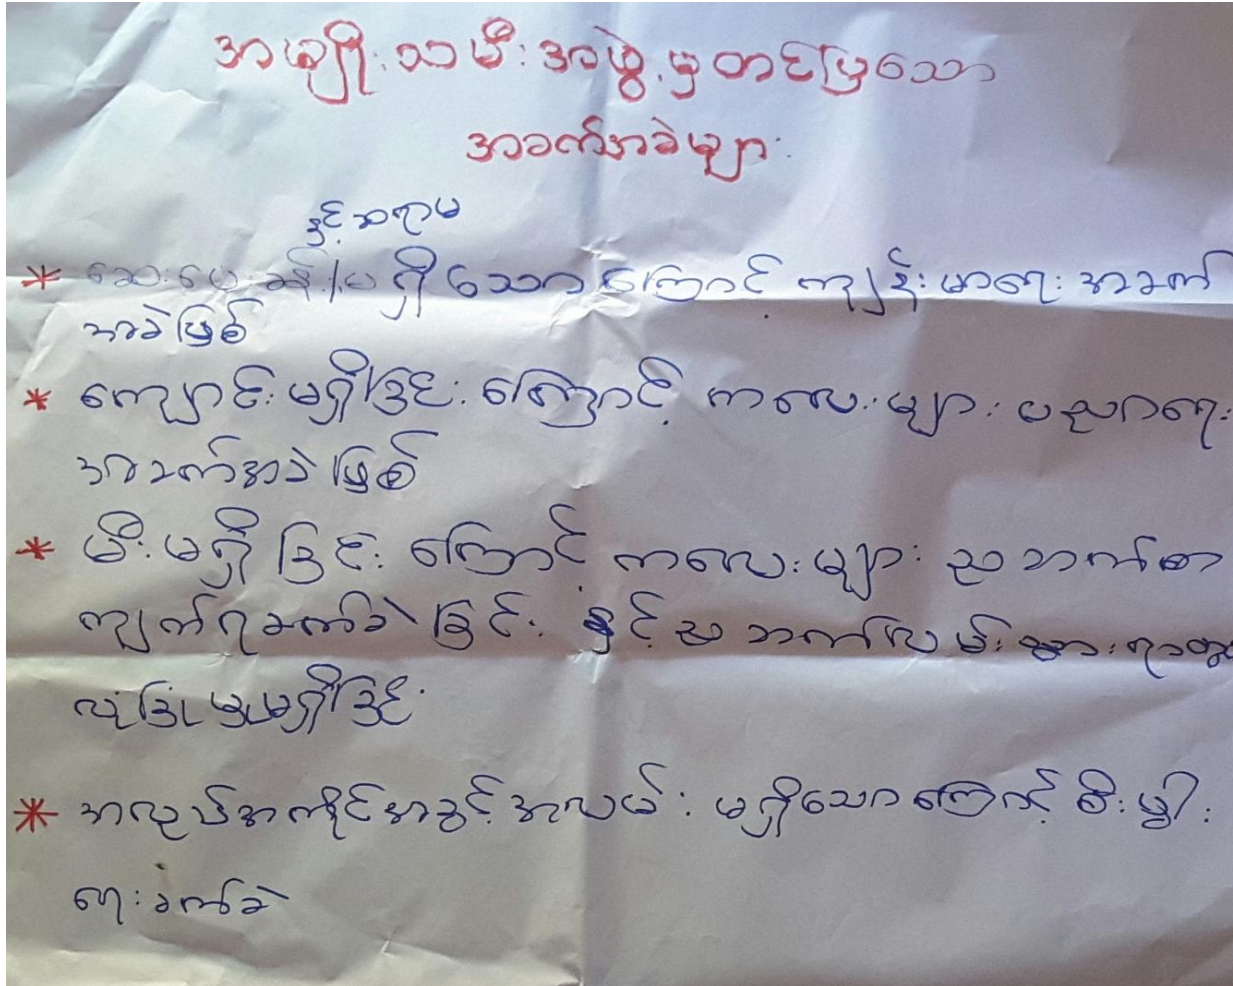 အမျိုးသမီးအဖွဲ့မှတင်ပြသော
အခက်အခဲများ
နှင့်ဆရာမ
* ဆေးပေးခန်း မရှိသောကြောင့် ကျန်းမာရေးအခက်
အခဲဖြစ်
* ကျောင်းမရှိခြင်းကြောင့် ကလေးများ ပညာရေး
အခက်အခဲဖြစ်
* မီးမရှိခြင်းကြောင့် ကလေးများ ညဘက်စာ
ကျက်ရခက်ခဲခြင်း နှင့် ညဘက်လမ်းသွားရာတွင်
လုံခြုံမှုမရှိခြင်း
* အလုပ်အကိုင်အခွင့်အလမ်း မရှိသောကြောင့် စီးပွါး
ရေးခက်ခဲ